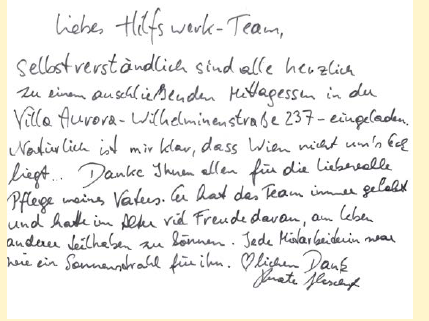 Liebes Hilfswerk-Team,
selbstverständlich sind alle herzlich
zu einem anschließenden Mittagessen in der
Villa Aurora - Wilhelminenstraße 237 - eingeladen.
Natürlich ist mir klar, dass Wien nicht um's Eck
liegt... Danke Ihnen allen für die liebevolle
Pflege meines Vaters. Er hat das Team immer gelobt
und hatte im Alter viel Freude daran, am Leben
anderer teilhaben zu können. Jede Mitarbeiterin war
wie ein Sonnenstrahl für ihn. ♡lichen Dank